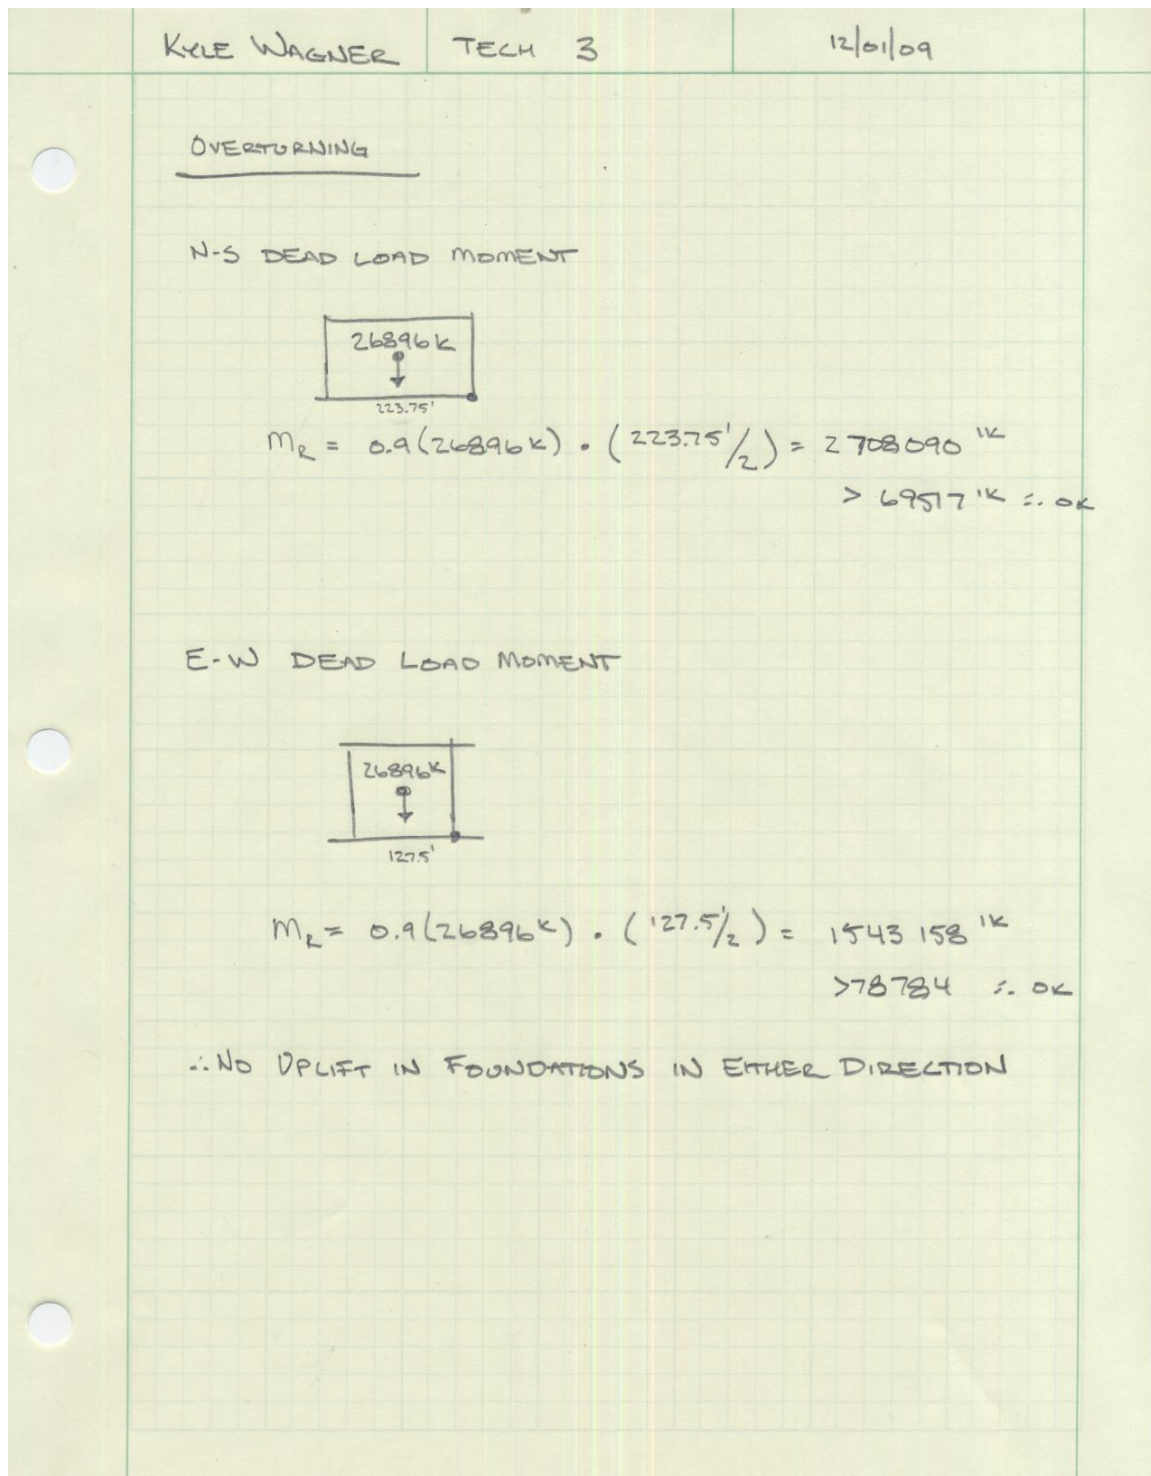 KYLE WAGNER TECH 3 12/01/09
OVERTURNING
N-S DEAD LOAD MOMENT
26896 K
223.75'
MR = 0.9(26896 K) · (223.75'/2) = 2708090 'K
> 69517 'K ∴ OK
E-W DEAD LOAD MOMENT
26896 K
127.5'
MR = 0.9(26896 K) · (127.5'/2) = 1543158 'K
>78784 ∴ OK
∴ NO UPLIFT IN FOUNDATIONS IN EITHER DIRECTION